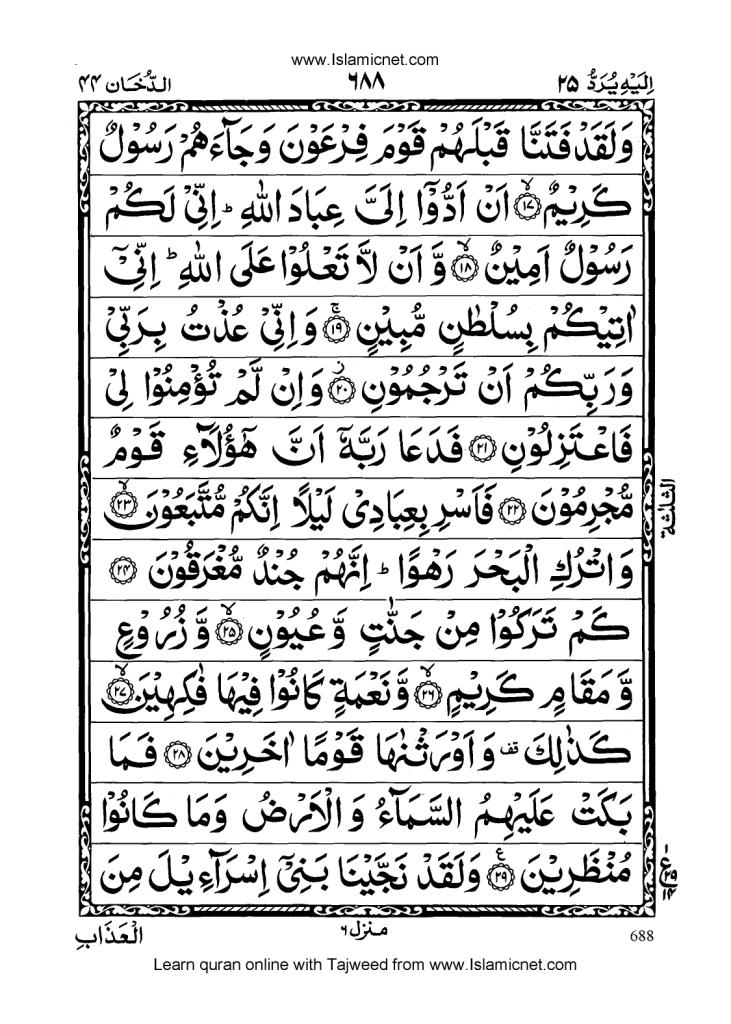 www.Islamicnet.com
اِلَيْهِ يُرَدُّ ٢٥
٦٨٨
الدُّخَان ٤٤
وَلَقَدْ فَتَنَّا قَبْلَهُمْ قَوْمَ فِرْعَوْنَ وَجَآءَهُمْ رَسُوْلٌ
كَرِيْمٌ ۙ‏﴿١٧﴾ اَنْ اَدُّوْۤا اِلَىَّ عِبَادَ اللّٰهِ ؕ اِنِّىْ لَكُمْ
رَسُوْلٌ اَمِيْنٌ ۙ‏﴿١٨﴾ وَّ اَنْ لَّا تَعْلُوْا عَلَى اللّٰهِ ؕ اِنِّىْۤ
اٰتِيْكُمْ بِسُلْطٰنٍ مُّبِيْنٍ ۚ‏﴿١٩﴾ وَاِنِّىْ عُذْتُ بِرَبِّىْ
وَرَبِّكُمْ اَنْ تَرْجُمُوْنِ ز‏﴿٢٠﴾ وَاِنْ لَّمْ تُؤْمِنُوْا لِىْ
فَاعْتَزِلُوْنِ ﴿٢١﴾ فَدَعَا رَبَّهٗۤ اَنَّ هٰٓؤُلَآءِ قَوْمٌ
مُّجْرِمُوْنَ ﴿٢٢﴾ فَاَسْرِ بِعِبَادِىْ لَيْلًا اِنَّكُمْ مُّتَّبَعُوْنَ ۙ‏﴿٢٣﴾
الثلثة
وَاتْرُكِ الْبَحْرَ رَهْوًا ؕ اِنَّهُمْ جُنْدٌ مُّغْرَقُوْنَ ﴿٢٤﴾
كَمْ تَرَكُوْا مِنْ جَنّٰتٍ وَّعُيُوْنٍ ۙ‏﴿٢٥﴾ وَّزُرُوْعٍ
وَّمَقَامٍ كَرِيْمٍ ۙ‏﴿٢٦﴾ وَّنَعْمَةٍ كَانُوْا فِيْهَا فٰكِهِيْنَ ۙ‏﴿٢٧﴾
كَذٰلِكَ قف وَاَوْرَثْنٰهَا قَوْمًا اٰخَرِيْنَ ﴿٢٨﴾ فَمَا
بَكَتْ عَلَيْهِمُ السَّمَآءُ وَالْاَرْضُ وَمَا كَانُوْا
مُنْظَرِيْنَ ع ﴿٢٩﴾ وَلَقَدْ نَجَّيْنَا بَنِىْۤ اِسْرَآءِيْلَ مِنَ
ع
٢٩
١٤
688
منزل ٦
الْعَذَابِ
Learn quran online with Tajweed from www.Islamicnet.com